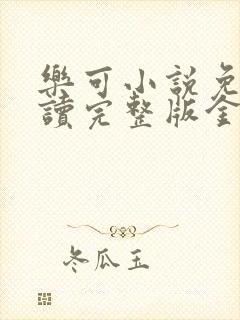 樂可小說免
讀完整版全
冬瓜玉